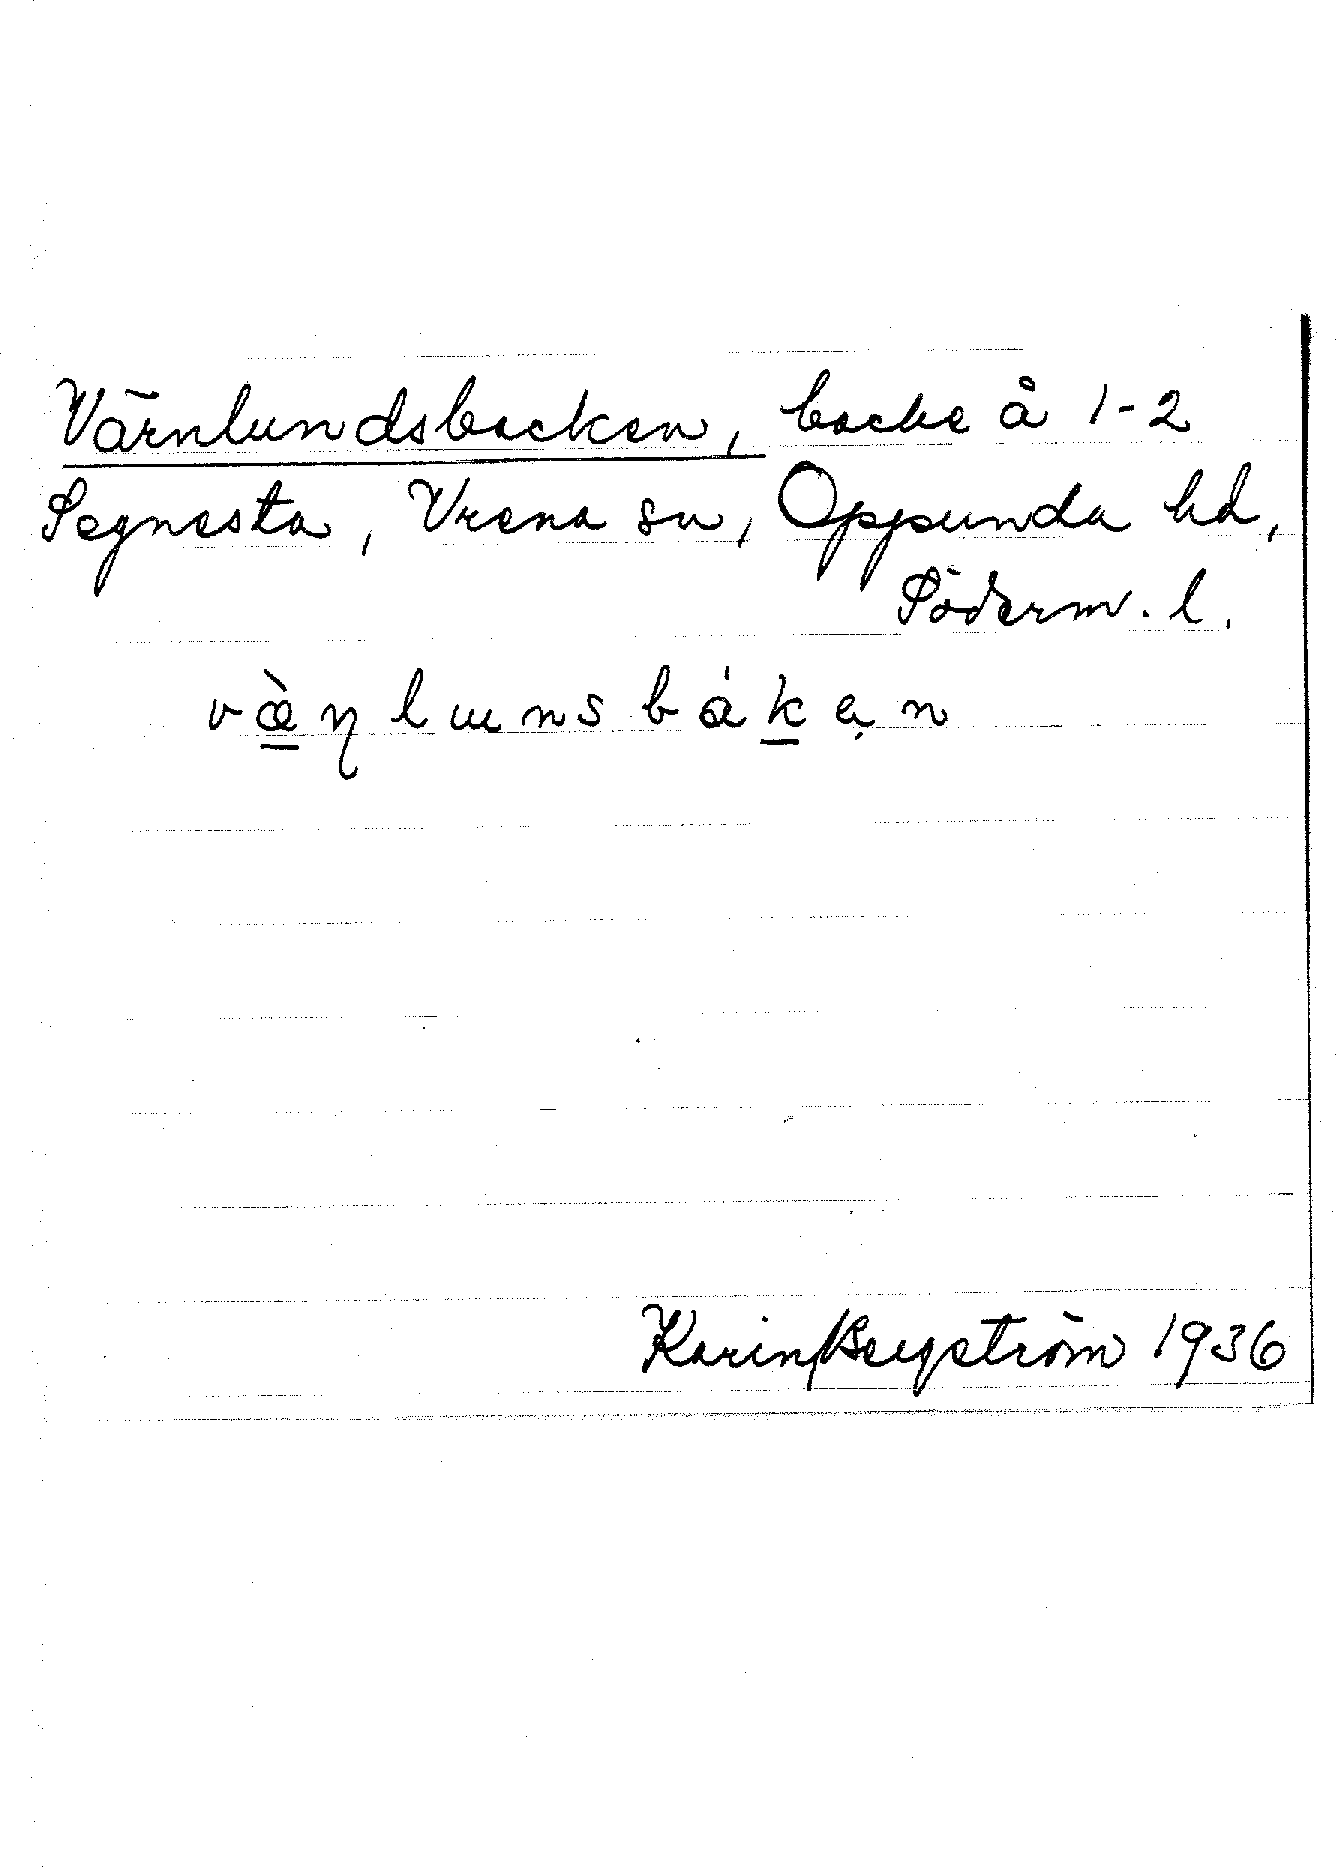 Värnlundsbacken, backe å 1-2
Segnesta, Vrena sn, Oppunda hd,
Söderm. l.
væ̲̀ɳlɯnsbák̲ẹn
Karin Bergström 1936